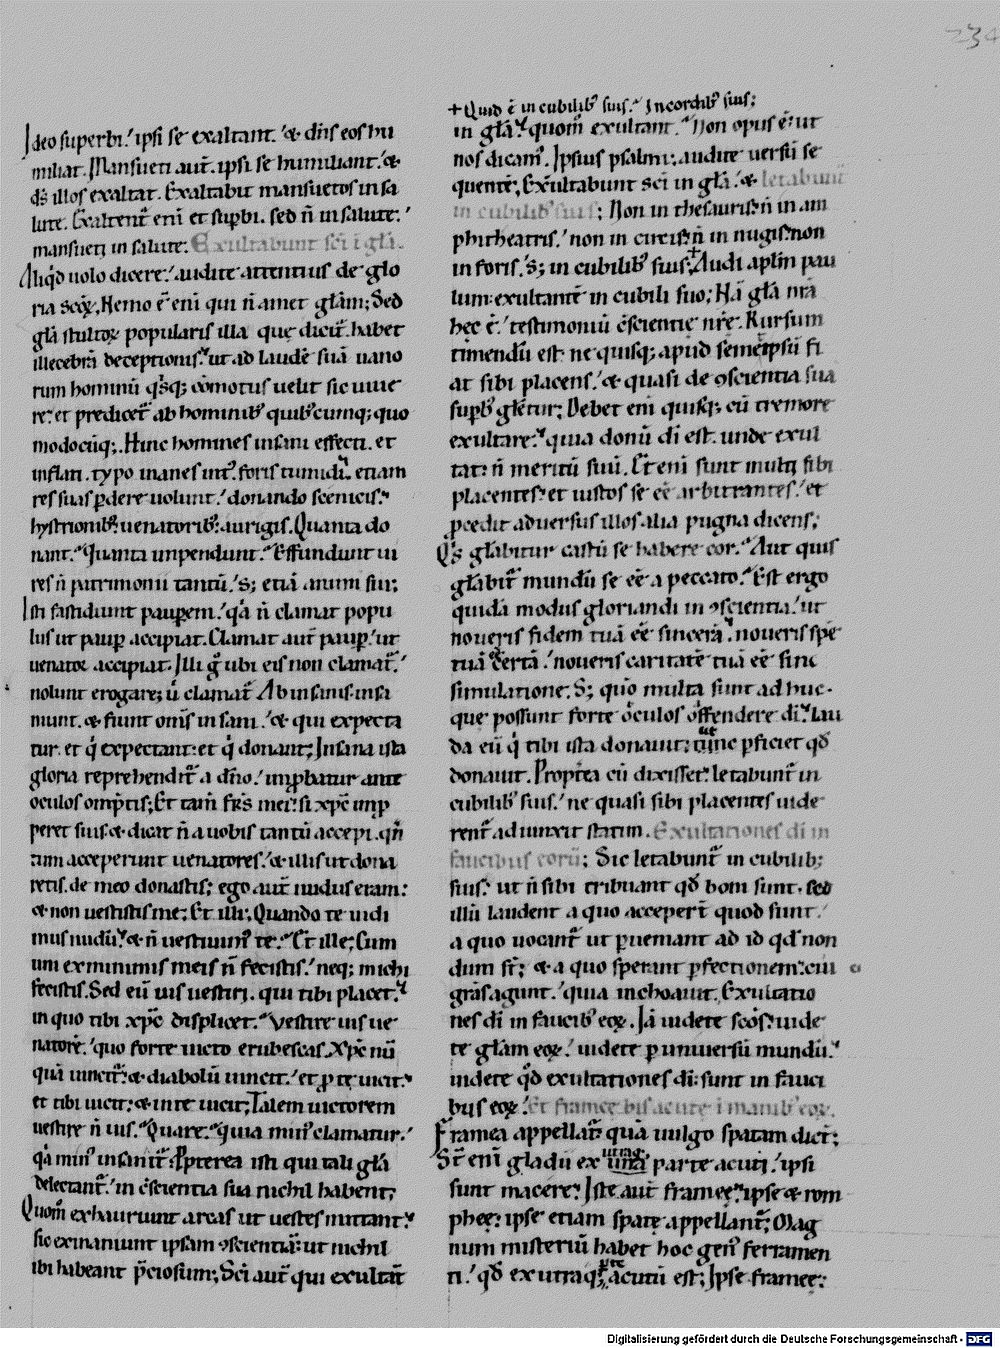 234
Ideo superbi. ipsi se exaltant. & dn̄s eos hu
miliat. Mansueti aut̄. ipsi se humiliant. &
ds̄ illos exaltat. Exaltabit mansuetos in sa
lute. Exaltent̄ enī et sup̱bi. sed n̄ in salute.
mansueti in salute. Exultabunt sc̄i ī gl̄a.
Aliqd uolo dicere. audite attentius de glo
ria scōꝝ. Nemo ē enī qui n̄ amet gl̄am; Sed
gl̄a stultoꝝ popularis illa que dicit̄. habet
illecebrā deceptionis. ut ad laudē suā uano
rum hominū qˢsq; cōmotus uelit sic uiue
re. et predicet̄ ab hominibꝰ quibꝰcumq; quo
modocūq;. Hinc homines insani effecti. et
inflati. typo inanes intꝰ. foris tumidi. etiam
res suas ꝑdere uolunt. donando scenicis.
hystrionibꝰ. uenatoribꝰ. aurigis. Quanta do
nant. Quanta inpendunt. Effundunt ui
res n̄ patrimonii tantū. s; etiā animi sui;
Isti fastidiunt pauꝑem. qa n̄ clamat popu
lus ut pauꝑ accipiat. Clamat aut̄ pauꝑ. ut
uenator accipiat. Illi gͦ ubi eis non clamat̄.
nolunt erogare; ū clamat̄ Ab insanis. insa
niunt. & fiunt om̄s insani. & qui expecta
tur. et q̇ expectant. et q̇ donant; Insana ista
gloria reprehendit̄ a dn̄o. inꝓbatur ante
oculos omp̄tis; Et tam̄ fr̄s mei. si xpc̄ inp
peret suis. & dicat n̄ a uobis tantū accepi. qn̄
tum acceperunt uenatores. & illis ut dona
retis. de meo donastis; ego aut̄ nudus eram.
& non uestistis me; Et illi; Quando te uidi
mus nudū. & n̄ uestiuimꝰ te. Et ille; Cum
uni ex minimis meis n̄ fecistis. neq; michi
fecistis. Sed eū uis uestiri. qui tibi placet.
in quo tibi xpc̄ displicet. Vestire uis ue
natorē. quo forte uicto erubescas. Xpc̄ nū
quā uincit̄. & diabolū uincit. et ꝓ te uicit.
et tibi uicit. & in te uicit; Talem uictorem
uestire n̄ uis. Quare. quia minꝰ clamatur.
qa minꝰ insanit̄. Ppterea isti qui tali gl̄a
delectant̄. in c̄scientia sua nichil habent;
Quom̄ exhauriunt arcas ut uestes mittant.
sic exinaniunt ipsam ꝯscientiā. ut nichil
ibi habeant p̄ciosum; Sc̄i aut̄ qui exultāt
+ Quid ē in cubilibꝰ suis. In cordibꝰ suis;
in gl̄a. quom̄ exultant. Non opus ē. ut
nos dicamꝰ. Ipsius psalmi. audite uersū se
quentē. Exultabunt sc̄i in gl̄a. & letabunt̄
in cubilibꝰ suis; Non in thesauris. n̄ in am
phitheatris. non in circis. n̄ in nugis. non
in foris. s; in cubilibꝰ suis. + Audi apl̄m pau
lum. exultantē in cubili suo; Hā gl̄a nr̄a
hęc ē. testimoniū c̄scientie nr̄e. Rursum
timendū est. ne quisq; apud semetipsū fi
at sibi placens. & quasi de ꝯscientia sua
sup̱bꝰ gl̄etur; Debet enī quisq; cū tremore
exultare. quia donū dī est. unde exul
tat. n̄ meritū suū. Et enī sunt multi sibi
placentes. et iustos se eē arbitrantes. et
ꝓcedit aduersus illos alia pugna dicens;
Qˢ gl̄abitur castū se habere cor. Aut quis
gl̄abit̄ mundū se eē a peccato. Est ergo
quidā modus gloriandi in ꝯscientia. ut
noueris fidem tuā eē sincerā. noueris spē
tuā eē certā. noueris caritatē tuā eē sine
simulatione. S; quo multa sunt adhuc.
que possunt forte oculos offendere dī. Lau
da eū q̇ tibi ista donauit; ut tunc ꝑficiet qd̄
donauit. Propt̄ea cū dixisset. letabunt̄ in
cubilibꝰ suis. ne quasi sibi placentes uide
rent̄ adiunxit statim. Exultationes dī in
faucibus eorū; Sic letabunt̄ in cubilib;
suis. ut n̄ sibi tribuant qd̄ boni sunt. sed
illū laudent a quo accepert̄ quod sunt.
a quo uocant̄ ut ꝑueniant ad id qd̄ non
dum st̄; & a quo sperant ꝑfectionem. cui
gr̄as agunt. quia inchoauit. Exultatio
nes dī in faucibꝰ eoꝝ. Iā uidete scōs. uide
te gl̄am eoꝝ. uidete ꝑ uniuersū mundū.
uidete qd̄ exultationes dī. sunt in fauci
bus eoꝝ. Et framee bis acute ī manibꝰ eoꝝ.
Framea appellat̄. quā uulgo spatam dict̄;
St̄ enī gladii ex utraq; unā parte acuti. ipsi
sunt macere. Iste aut̄ frameę. ipse & rom
pheę. ipse etiam spatę appellant̄; Mag
num misteriū habet hoc genꝰ ferramen
ti. qd̄ ex utraq; pte acutū est; Ipse frameę.
Digitalisierung gefördert durch die Deutsche Forschungsgemeinschaft - DFG